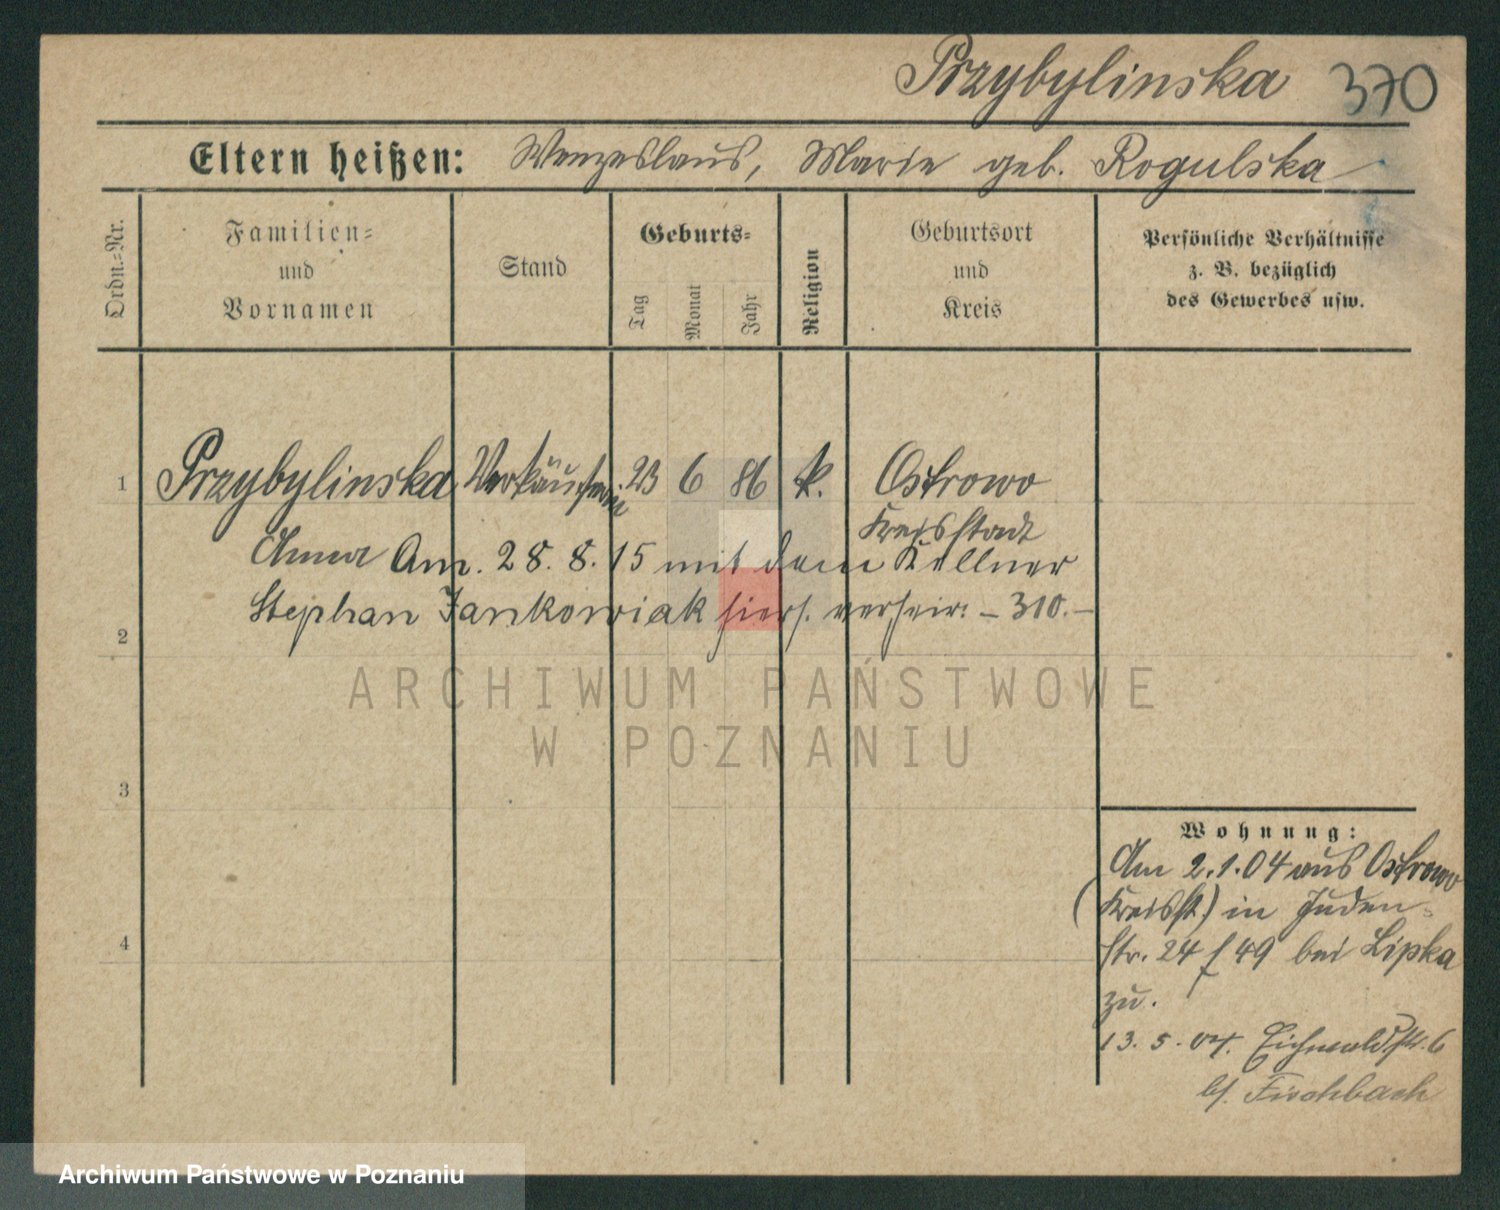 Przybylinska 370
Eltern heißen: Wenzeslaus, Marie geb. Rogulska
Ordn.=Nr.
Familien=
und
Vornamen
Stand
Geburts=
Tag
Monat
Jahr
Religion
Geburtsort
und
Kreis
Persönliche Verhältnisse
z. B. bezüglich
des Gewerbes usw.
1 Przybylinska Verkäuferin 23 6 86 k. Ostrowo
Kreisstadt
Anna Am. 28. 8. 15 mit dem Kellner
Stephan Jankowiak hiers. verheir. – 310.–
2
ARCHIWUM PAŃSTWOWE
W POZNANIU
3
Wohnung:
Am 2.1.04 aus Ostrowo
(Kreisst.) in Juden-
4
str. 24 / 49 bei Lipka
zu.
13. 5. 04. Eichwaldstr. 6
b/. Fischbach
Archiwum Państwowe w Poznaniu